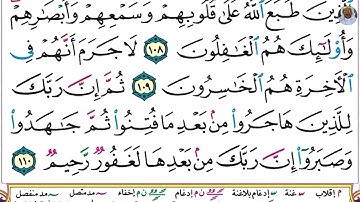 ٱلَّذِينَ طَبَعَ ٱللَّهُ عَلَىٰ قُلُوبِهِمْ وَسَمْعِهِمْ وَأَبْصَٰرِهِمْ
وَأُو۟لَٰٓئِكَ هُمُ ٱلْغَٰفِلُونَ ١٠٨ لَا جَرَمَ أَنَّهُمْ فِى
ٱلْءَاخِرَةِ هُمُ ٱلْخَٰسِرُونَ ١٠٩ ثُمَّ إِنَّ رَبَّكَ
لِلَّذِينَ هَاجَرُوا۟ مِنۢ بَعْدِ مَا فُتِنُوا۟ ثُمَّ جَٰهَدُوا۟
وَصَبَرُوٓا۟ إِنَّ رَبَّكَ مِنۢ بَعْدِهَا لَغَفُورٌ رَّحِيمٌ ١١٠
م إقلاب غنة إدغام بلاغنة ن م إدغام ن م إخفاء مد متصل مد منفصل